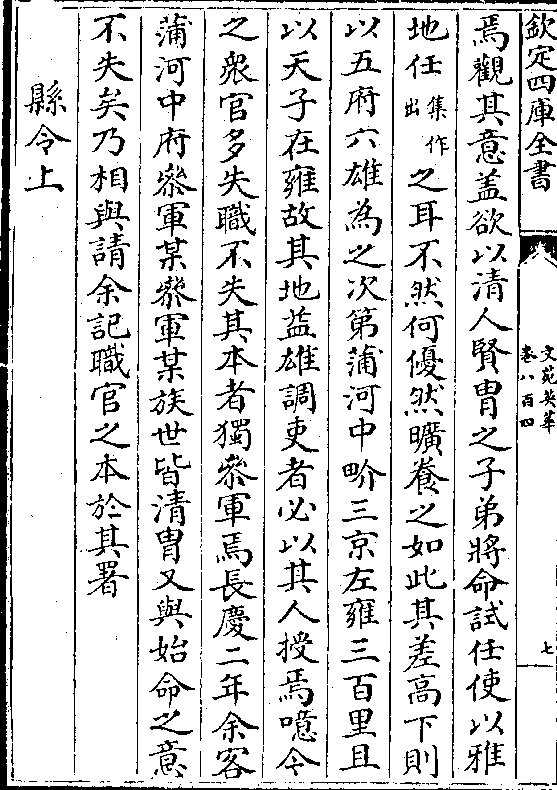 欽定四庫全書
文苑英華
卷八百四
七
焉觀其意盖欲以清人賢胄之子弟將命試任使以雅
地任集作出之耳不然何優然曠養之如此其差高下則
以五府六雄為之次第蒲河中界三京左雍三百里且
以天子在雍故其地益雄調吏者必以其人授焉噫今
之衆官多失職不失其本者獨叅軍焉長慶二年余客
蒲河中府叅軍某叅軍某族世皆清胄又與始命之意
不失矣乃相與請余記職官之本於其署
縣令上